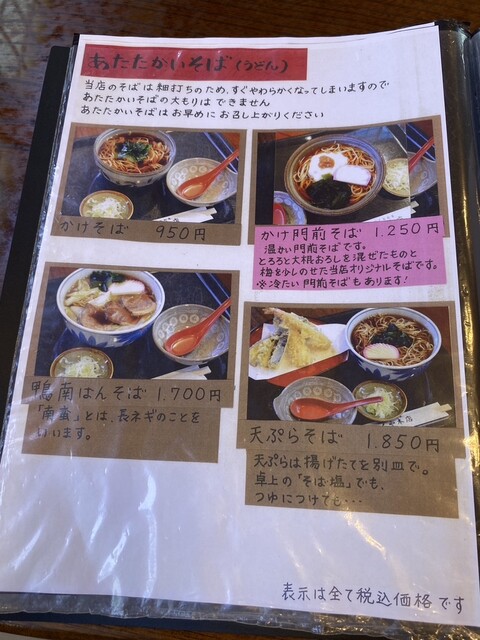 あたたかいそば(うどん)
当店のそばは細打ちのため、すぐやわらかくなってしまいますので
あたたかいそばの大もりは できません
あたたかいそばは お早めにお召し上がりください
かけそば 950円
かけ門前そば 1.250円
温かい門前そばです。
とろろと大根おろしを混ぜたものと
梅を少しのせた当店オリジナルそばです。
※冷たい門前そばもあります!
鴨南ばんそば 1.700円
「南蛮」とは、長ネギのことを
いいます。
天ぷらそば 1.850円
天ぷらは揚げたてを別皿で。
卓上の「そば塩」でも、
つゆにつけても・・・
表示は全て税込価格です